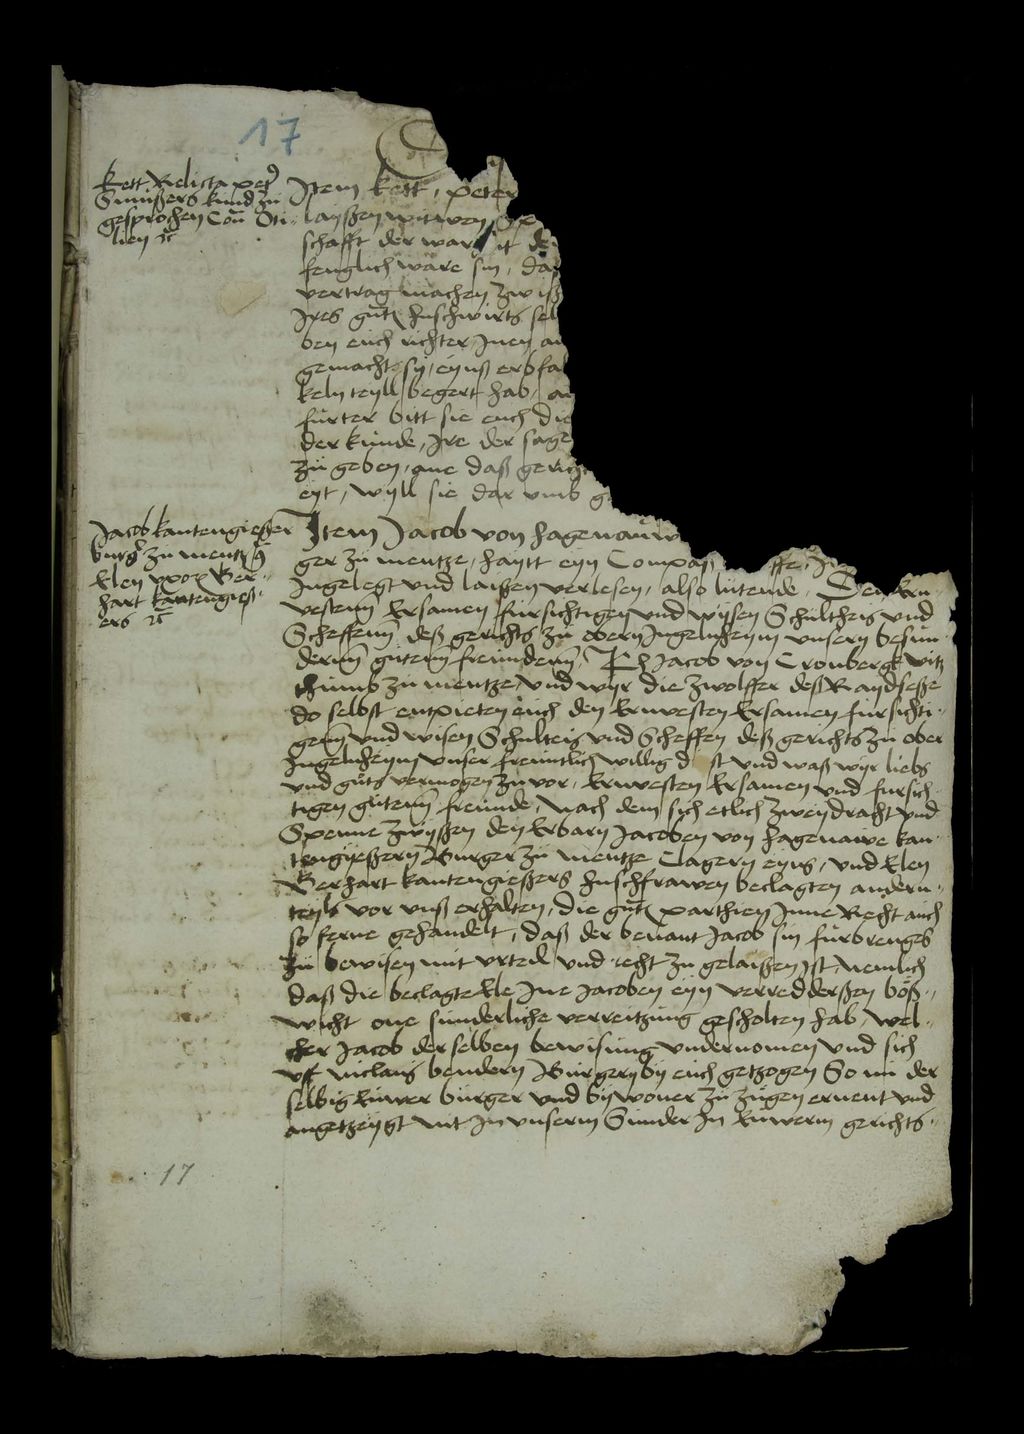 17
Kett Relicta pet
Smißers kund zu
gesprochen Con Oti-
lien
Item Kett, peter
laißen witwen
schafft der war it de
fenglich ware sin, das
vertrag machen zwiß
Ires gute huschwirts sel
ben euch richter Inen an
gemacht sij, eynß erbfal
keln teyll begert hab, an
furter bitt sie euch die
der kunde, Ire der sage
zu geben, ane daß gericht
eyt, wyll sie dar umb g
Jacob kantengießer
burg zu mentz
klen uxor Ber-
hart kantengieß-
ers
Item Jacob von hagenauw
ger zu mentze, haytt eyn Compaß
Ingelegt und laißen verlesen, also lutende, Den Ern
vesten Ersamen fursichtigen und wysen Schultheis und
Scheffenn deß gerichts zu obern Ingelnheym unsern besun-
dernn gutenn freundenn, Ich Jacob von Cronbergk vitz
thumb zu mentze, und wyr die zwolffer deß Raydseße
do selbst entpieten euch den Ernvesten Ersamen fursichti-
genn und wisen Schulteis und Scheffen deß gerichts zu ober
Ingelnheym unser freuntlich willig d st und waß wyr liebs
und guts vermogen zuvor, Ernvesten Ersamen und fursich-
tigen gutenn freunde, Nach dem sich etlich zweydracht und
Spenne zwyßen den Erbarn Jacoben von hagenauwe kan-
tengyeßern Burger zu mentze Clagern eyns, und klen
Berhart kantengießers huschfrawen beclagten andern-
teyls vor unß erhalten, die gute parthien Inne Recht auch
so ferne gehandelt, daß der benant Jacob sin furbrenges
zu bewisen mit urteil und recht zu gelaißen ist, nemlich
daß die beclagte kle Ine Jacoben eyn verredderßen böß-
wicht one sunderliche verreitzung gescholten hab, wel-
cher Jacob der selben bewisung undernomen und sich
uff niclaus bendern Burgern by euch getzogen So nu der
selbig Euwer burger und bywoner zu zugen ernent und
angetzeygt nit In unserm Sunder In Euwerm gerichts-
17